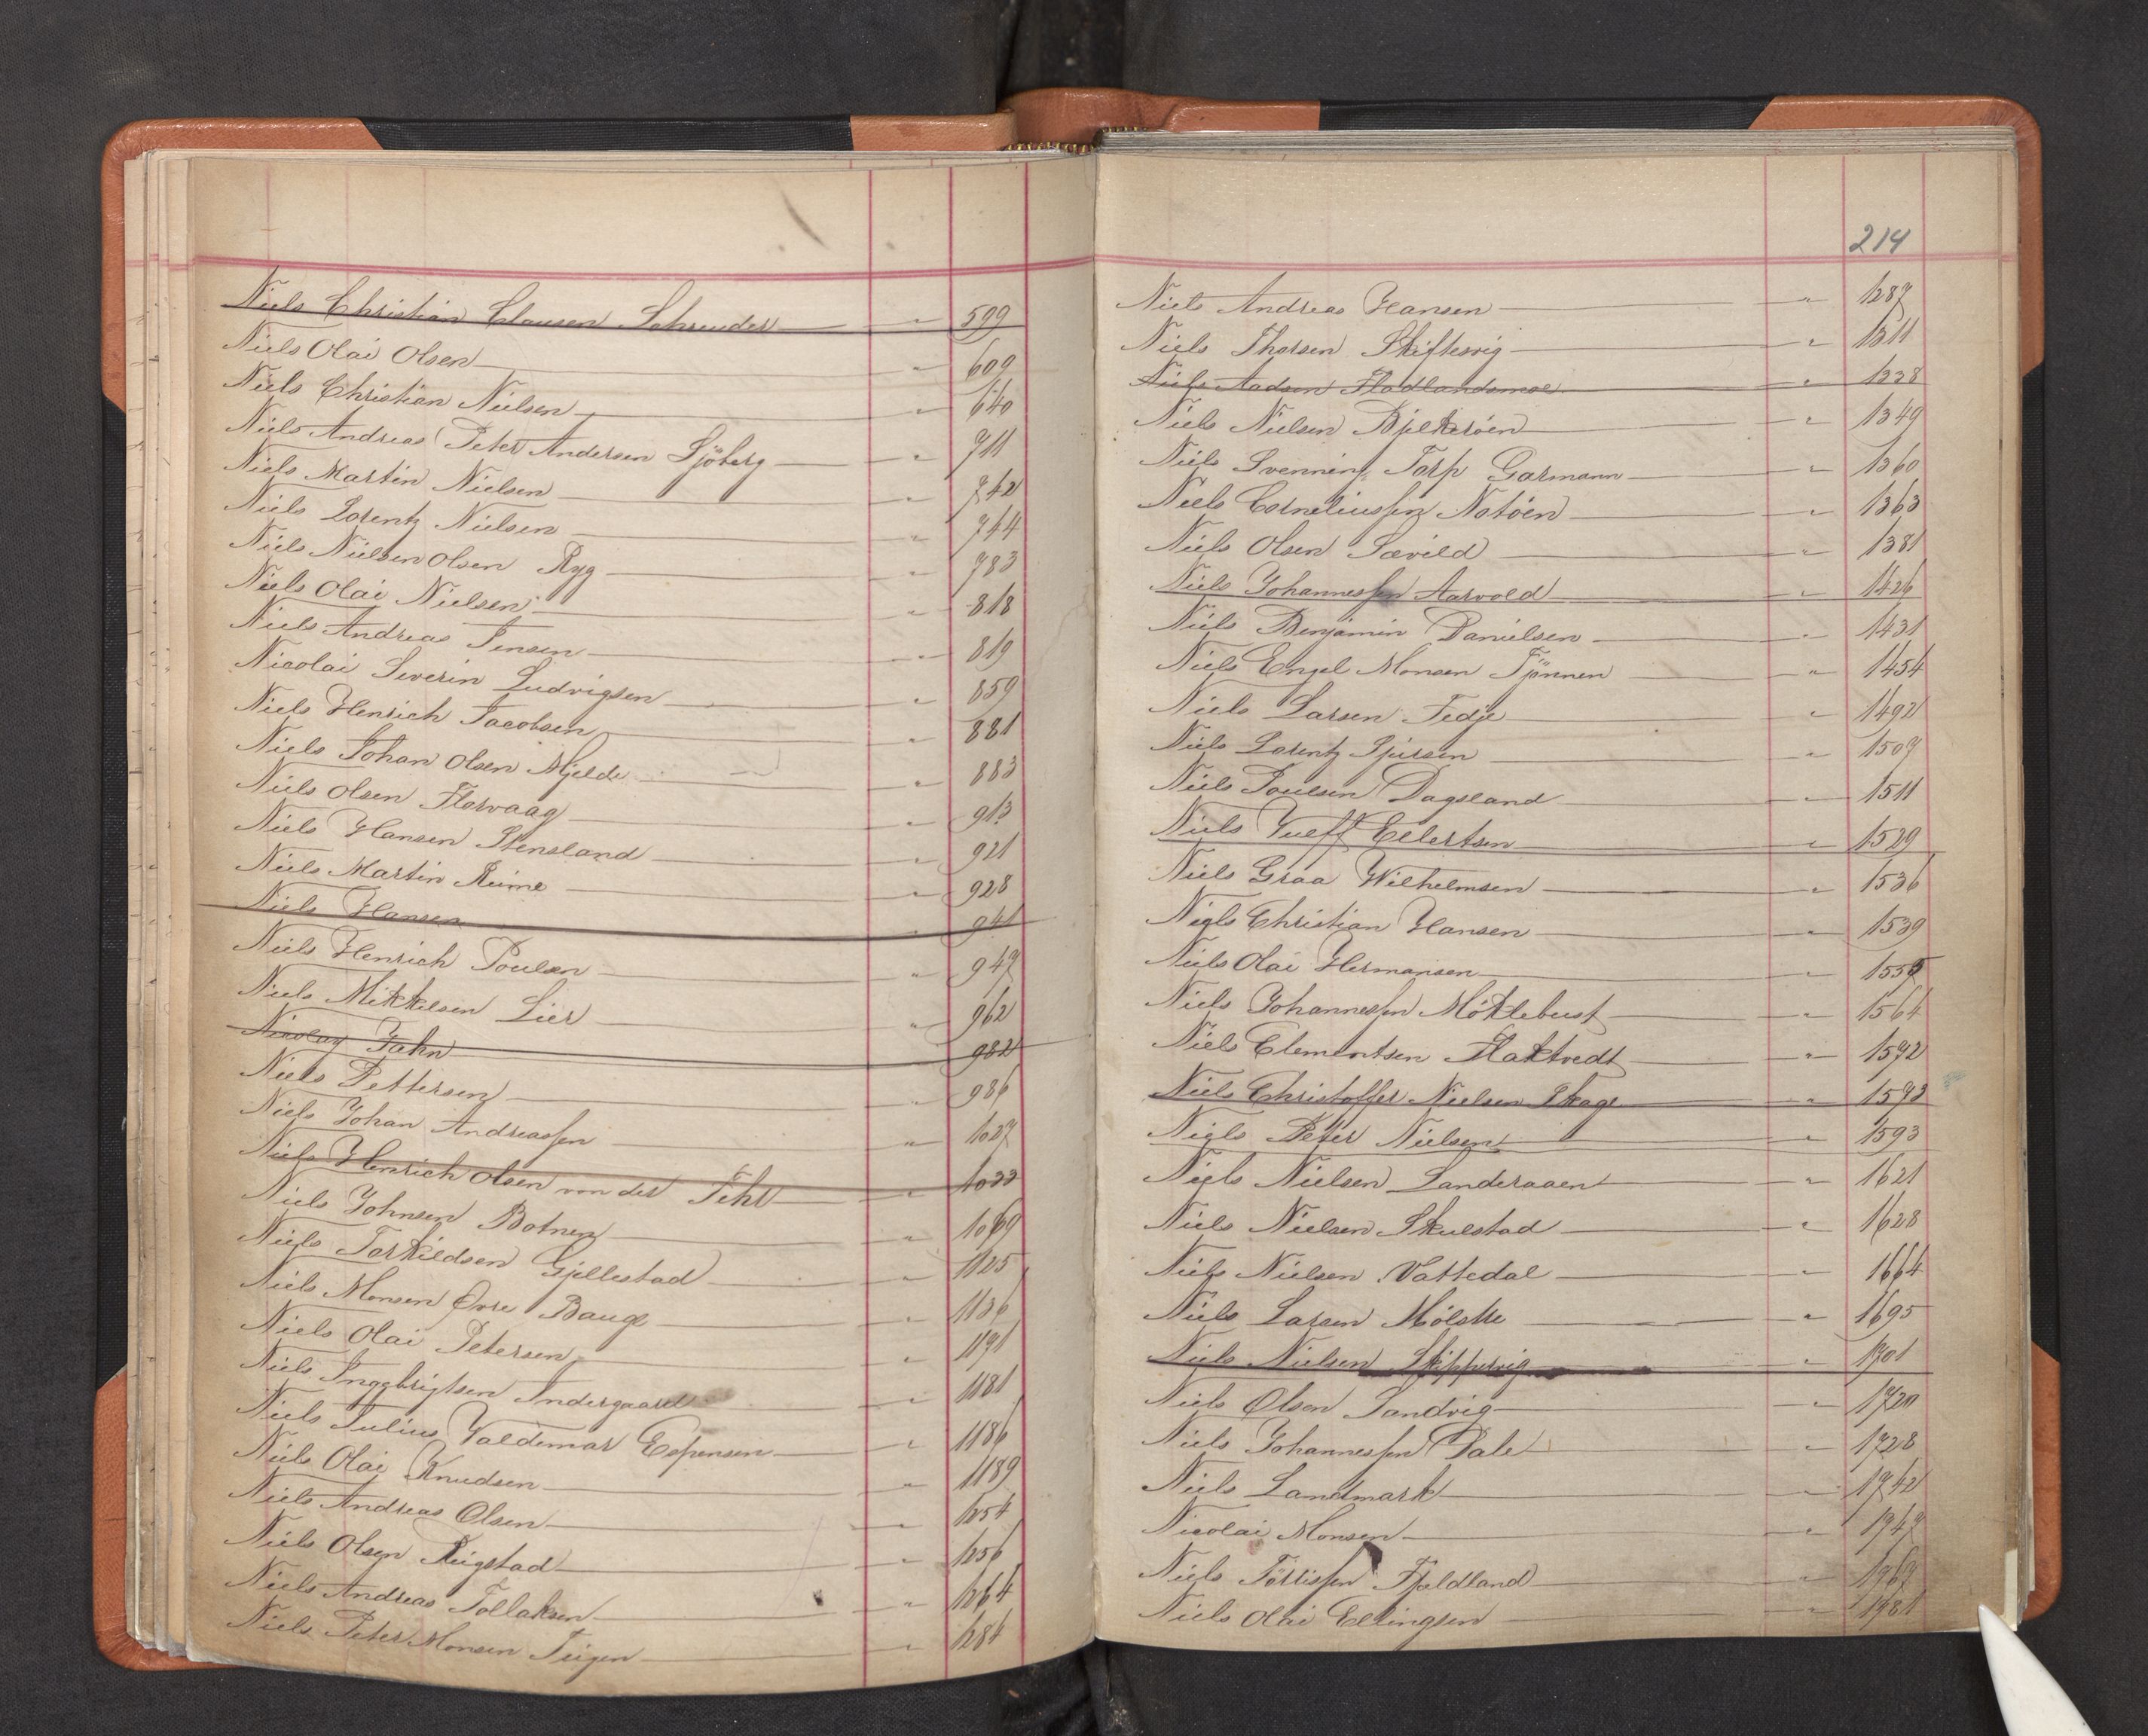 Niels Christian Clausen Schreuder " 599
Niels Olai Olsen " 609
Niels Christian Nielsen " 640
Niels Andreas Peter Andersen Sjöberg " 711
Niels Martin Nielsen " 742
Niels Lorentz Nielsen " 744
Niels Nielsen Olsen Ryg " 783
Niels Olai Nielsen " 818
Niels Andreas Jensen " 819
Nicolai Severin Ludvigsen " 859
Niels Henrich Jacobsen " 881
Niels Johan Olsen Mjelde " 883
Niels Olsen Florvaag " 913
Niels Hansen Stensland " 921
Niels Martin Reime " 928
Niels Hansen " 941
Niels Henrich Poulsen " 947
Niels Mikkelsen Lier " 962
Nicolay Jahn 982
Niels Pettersen " 986
Niels Johan Andreassen " 1027
Niels Henrich Olsen von der Fehr " 1033
Niels Johnsen Botnen " 1069
Niels Torkildsen Gjellestad " 1125
Niels Monsen Øvre Bauge " 1136
Niels Olai Petersen " 1171
Niels Inggbrigtsen Indergaard " 1181
Niels Julius Valdemar Espensen " 1186
Niels Olai Knudsen " 1189
Niels Andreas Olsen " 1254
Niels Olsen Reigstad " 1256
Niels Andreas Tollaksen " 1264
Niels Peter Monsen Teigen " 1284
214
Niels Andreas Hansen " 1287
Niels Thorsen Skiftesvig " 1311
Niels Aadsen Fladlandsmoe " 1338
Niels Nielsen Bjelkerøen " 1349
Niels Svenning Torp Garmann " 1360
Niels Corneliussen Notøen " 1363
Niels Olsen Sævild " 1381
Niels Johannessen Aarvold " 1426
Niels Benjamin Danielsen " 1431
Niels Engel Monsen Tjönnen " 1454
Niels Larsen Fedje " 1492
Niels Lorentz Sjursen " 1507
Niels Poulsen Dagsland " 1511
Niels Eilertsen " 1529
Niels Graa Wilhelmsen " 1536
Niels Christian Hansen " 1539
Niels Olai Hermansen " 1555
Niels Johannessen Møklebust " 1564
Niels Clementsen Flaktvedt " 1572
Niels Christoffer Nielsen Skage " 1573
Niels Peter Nielsen " 1593
Niels Nielsen Landeraaen " 1621
Niels Nielsen Skulstad " 1628
Niels Nielsen Vattedal " 1664
Niels Larsen Mølstre " 1695
Niels Nielsen Skippervig " 1701
Niels Olsen Sandvig " 1720
Niels Johannessen Dale " 1728
Niels Landmark " 1742
Nicolai Monsen " 1747
Niels Törrissen Fjeldland " 1767
Niels Olai Ellingsen " 1781